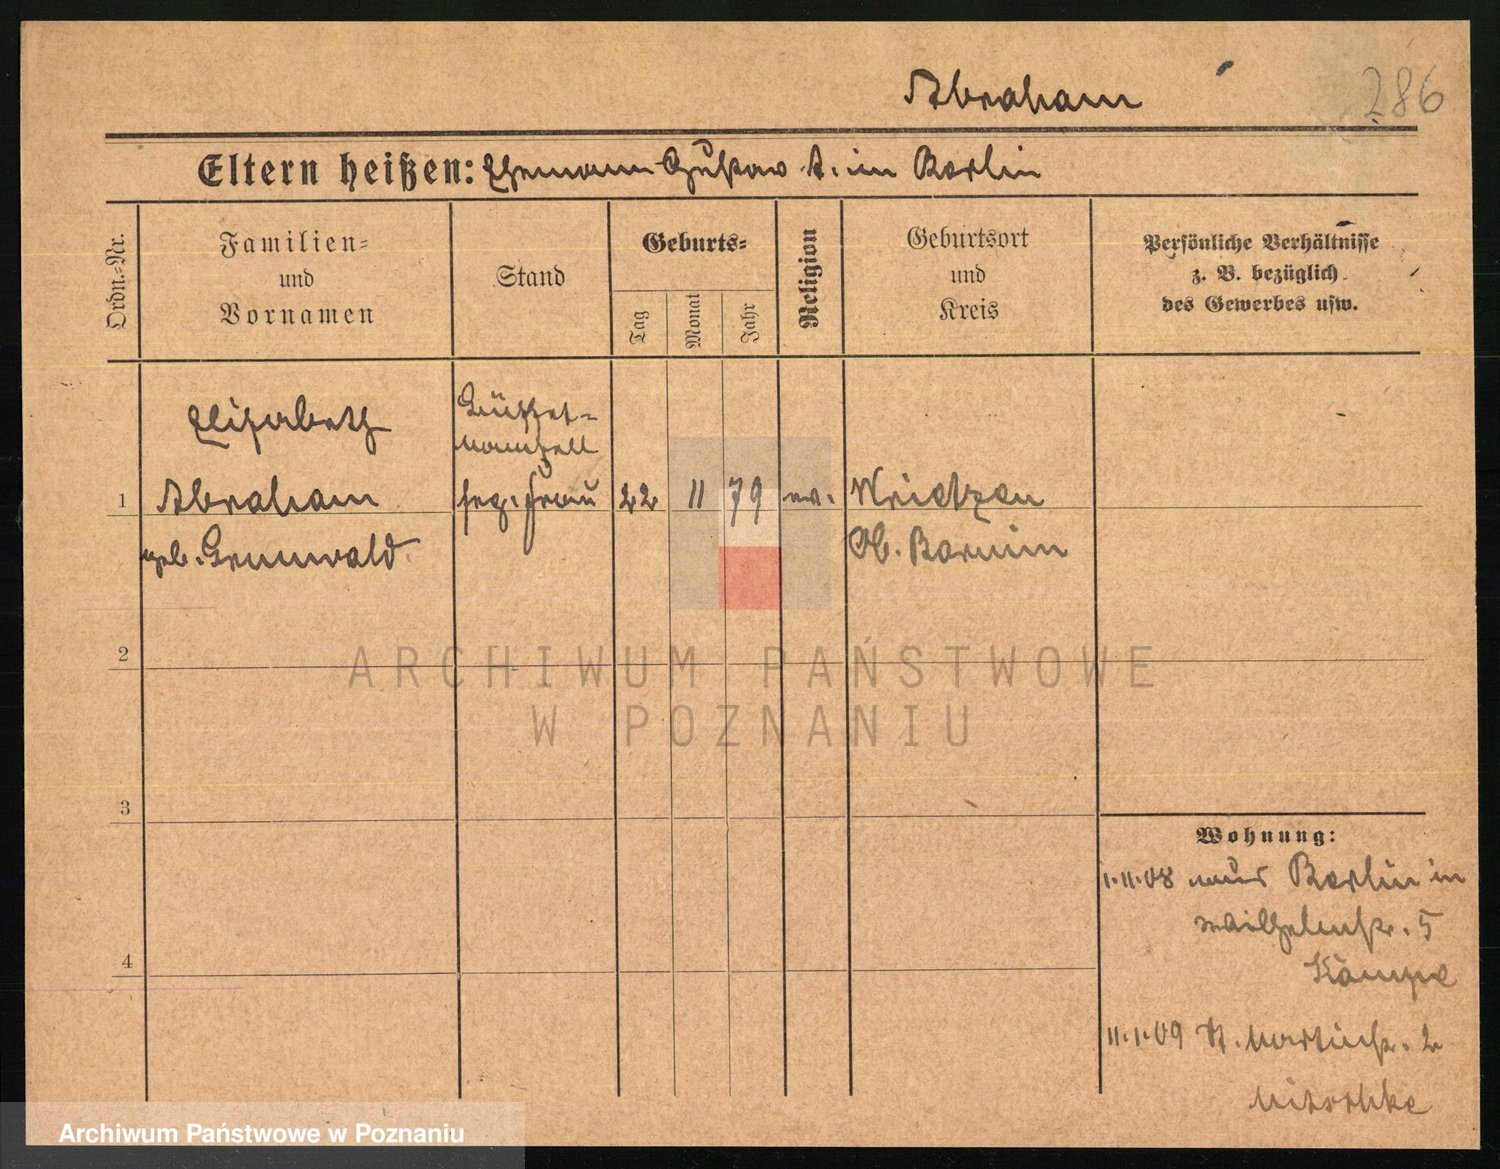 Abraham
286
Eltern heißen: Ehemann Gustav A. in Berlin
Ordn.-Nr.
Familien-
und
Vornamen
Stand
Geburts-
Tag
Monat
Jahr
Religion
Geburtsort
und
Kreis
Persönliche Verhältnisse
z. B. bezüglich
des Gewerbes usw.
Elisabeth
Büffet-
mamsell
1 Abraham
sep. Frau
22 11 79 ev. Wrietzen
geb. Grunwald
Ob. Barnim
2
3
4
Wohnung:
1.11.08 aus Berlin in
Wilhelmstr. 5
Kämpe
11.1.09 St. Martinstr. 2
Nitschke
ARCHIWUM PAŃSTWOWE
W POZNANIU
Archiwum Państwowe w Poznaniu